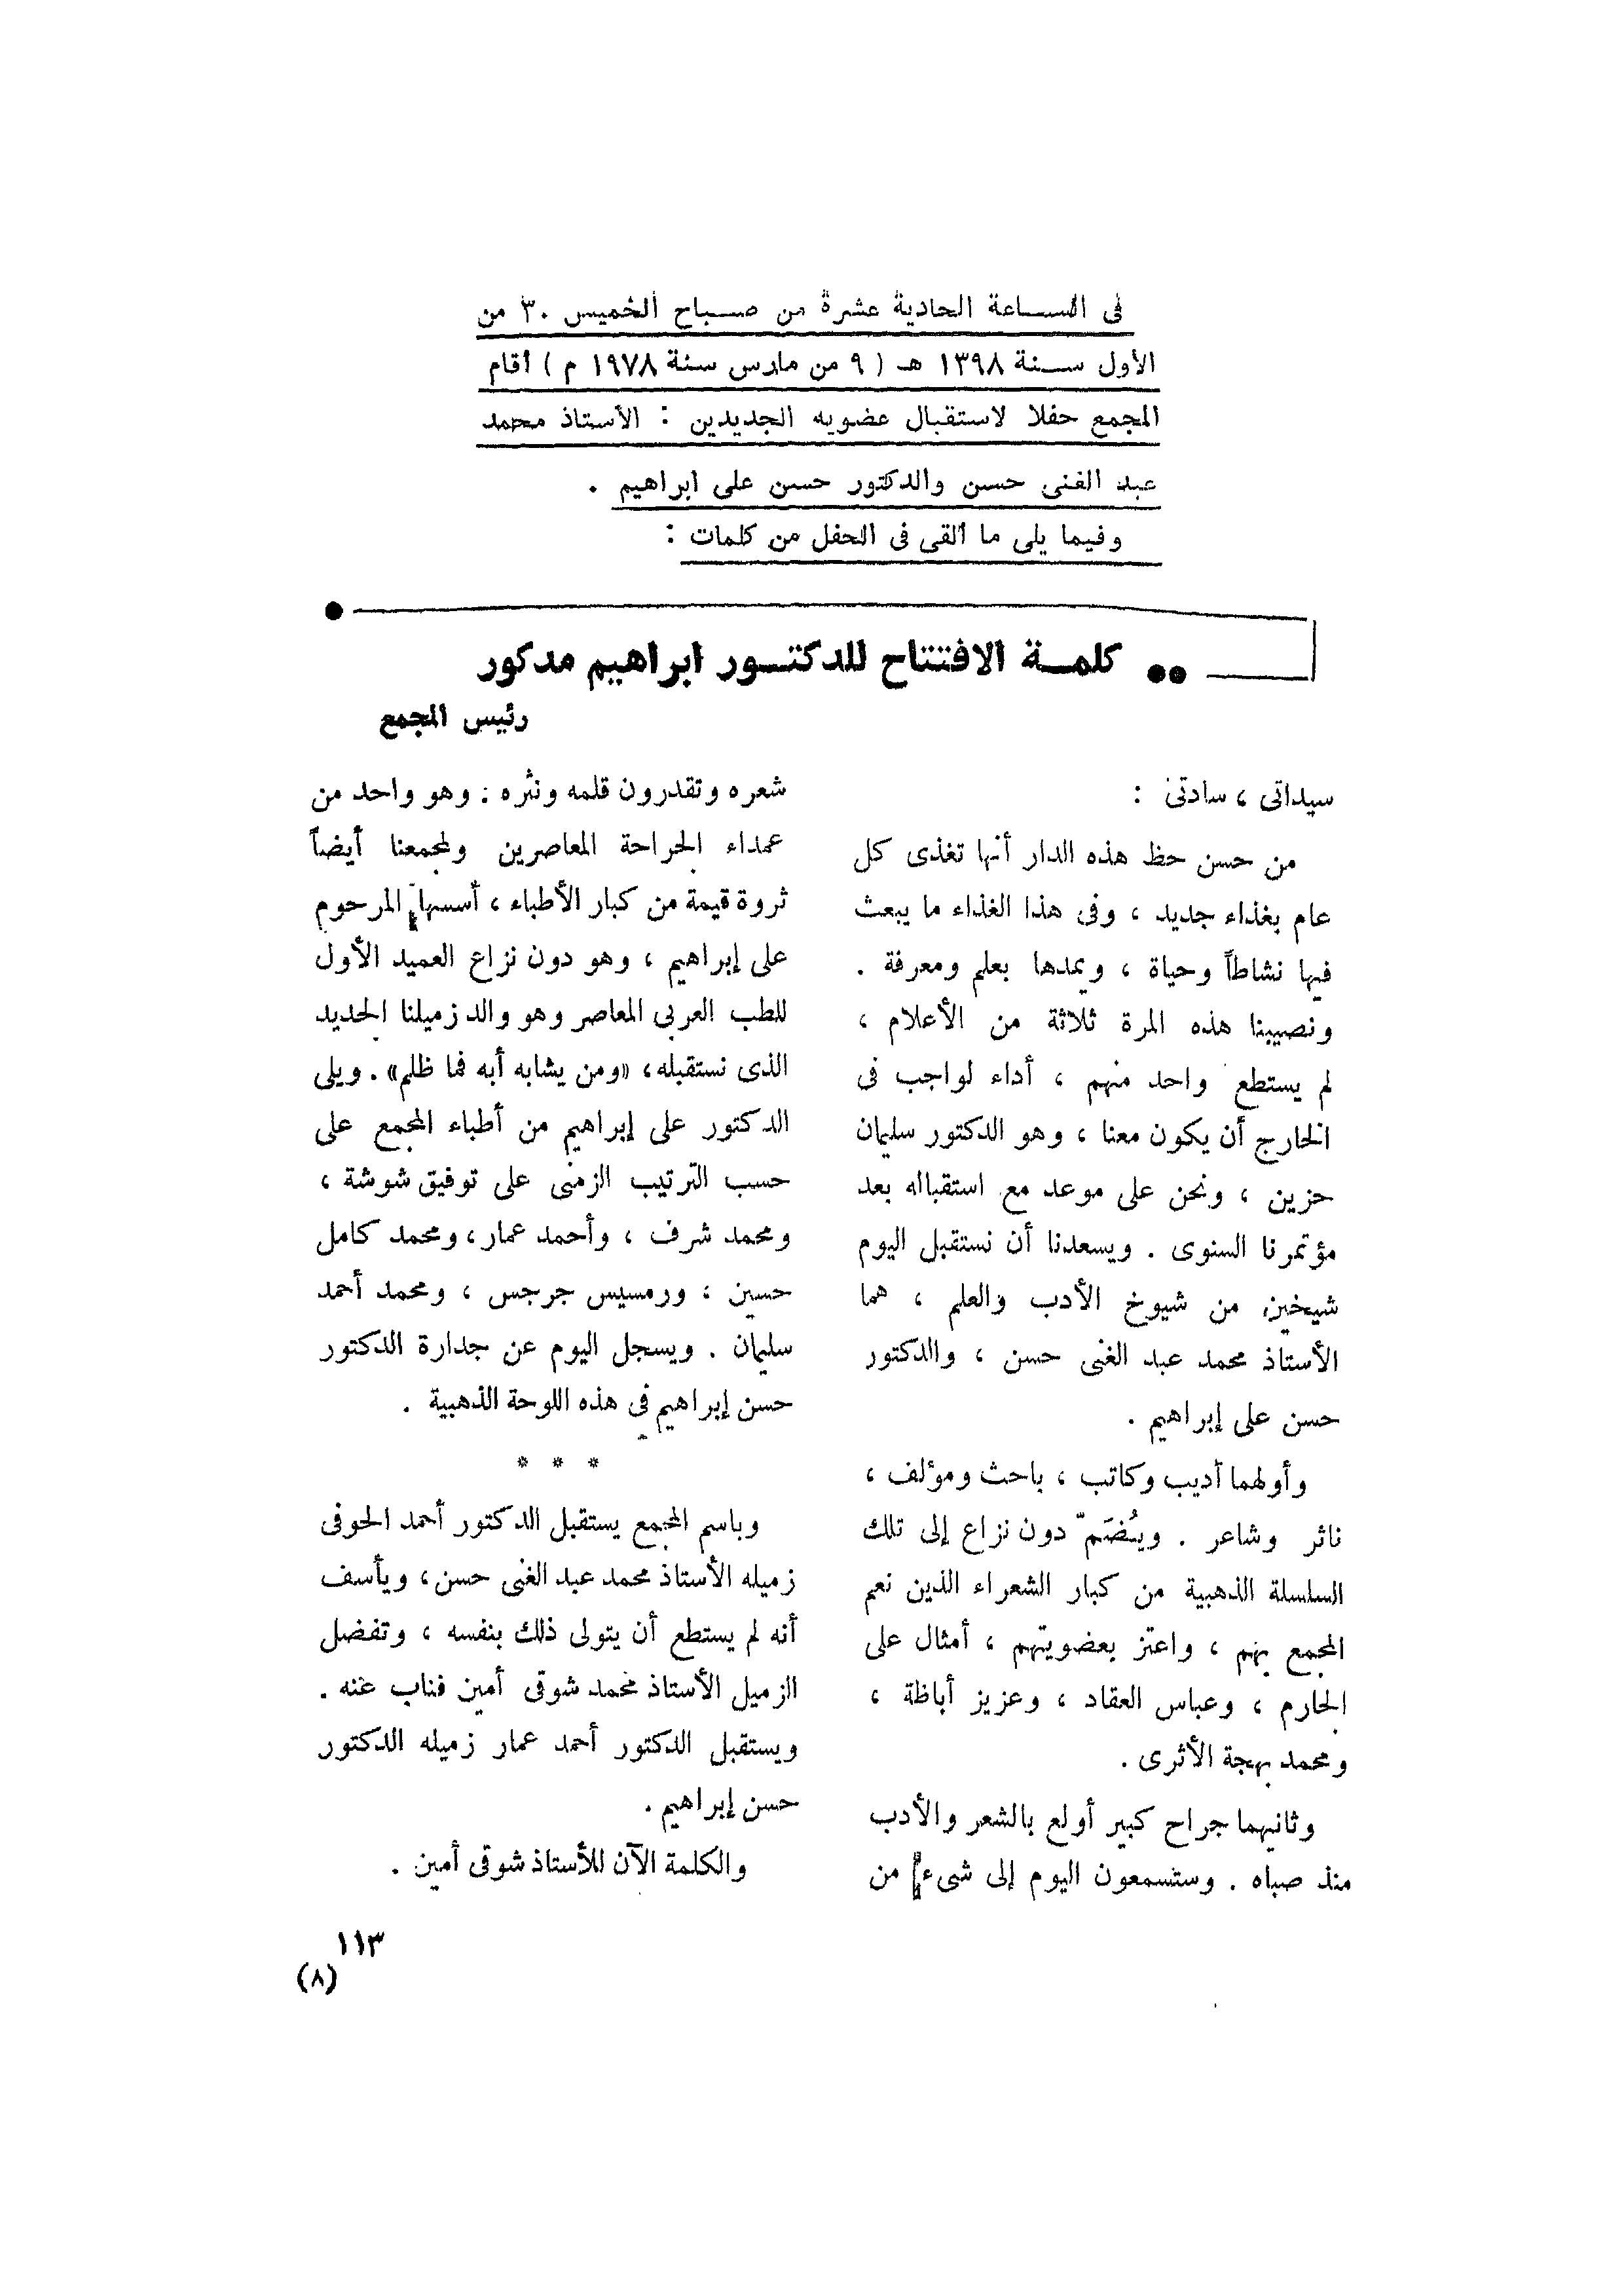 فى الساعة الحادية عشرة من صباح الخميس ٣٠ من
الأول سنة ١٣٩٨ هـ ( ٩ من مارس سنة ١٩٧٨ م ) أقام
المجمع حفلا لاستقبال عضويه الجديدين : الأستاذ محمد
عبد الغنى حسن والدكتور حسن على ابراهيم .
وفيما يلى ما ألقى فى الحفل من كلمات :
كلمة الافتتاح للدكتور ابراهيم مدكور
رئيس المجمع
سيداتى ، سادتى :
من حسن حظ هذه الدار أنها تغذى كل
عام بغذاء جديد ، وفى هذا الغذاء ما يبعث
فيها نشاطاً وحياة ، ويمدها بعلم ومعرفة .
ونصيبنا هذه المرة ثلاثة من الأعلام ،
لم يستطع واحد منهم ، أداء لواجب فى
الخارج أن يكون معنا ، وهو الدكتور سليمان
حزين ، ونحن على موعد مع استقباله بعد
مؤتمرنا السنوى . ويسعدنا أن نستقبل اليوم
شيخين من شيوخ الأدب والعلم ، هما
الأستاذ محمد عبد الغنى حسن ، والدكتور
حسن على إبراهيم .
وأولهما أديب وكاتب ، باحث ومؤلف ،
ناثر وشاعر . ويُضَمّ دون نزاع إلى تلك
السلسلة الذهبية من كبار الشعراء الذين نعم
المجمع بهم ، واعتز بعضويتهم ، أمثال على
الجارم ، وعباس العقاد ، وعزيز أباظة ،
ومحمد بهجة الأثرى .
وثانيهما جراح كبير أولع بالشعر والأدب
منذ صباه . وستسمعون اليوم إلى شىء من
شعره وتقدرون قلمه ونثره : وهو واحد من
عمداء الجراحة المعاصرين ولمجمعنا أيضاً
ثروة قيمة من كبار الأطباء ، أسسها المرحوم
على إبراهيم ، وهو دون نزاع العميد الأول
للطب العربى المعاصر وهو والد زميلنا الجديد
الذى نستقبله، «ومن يشابه أبه فما ظلم» . ويلى
الدكتور على إبراهيم من أطباء المجمع على
حسب الترتيب الزمنى على توفيق شوشة ،
ومحمد شرف ، وأحمد عمار، ومحمد كامل
حسين ، ورمسيس جرجس ، ومحمد أحمد
سليمان . ويسجل اليوم عن جدارة الدكتور
حسن إبراهيم فى هذه اللوحة الذهبية .
* * *
وباسم المجمع يستقبل الدكتور أحمد الحوفى
زميله الأستاذ محمد عبد الغنى حسن، ويأسف
أنه لم يستطع أن يتولى ذلك بنفسه ، وتفضل
الزميل الأستاذ محمد شوقى أمين فناب عنه .
ويستقبل الدكتور أحمد عمار زميله الدكتور
حسن إبراهيم .
والكلمة الآن للأستاذ شوقى أمين .
١١٣
(٨)